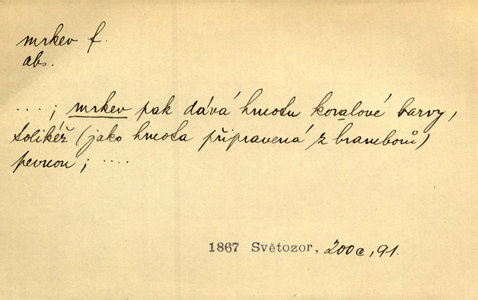 mrkev f.
abs.
...; mrkev pak dává hmotu koralové barvy,
tolikéž (jako hmota připravená z bramborů)
pevnou; ....
1867 Světozor, 200c, 91.